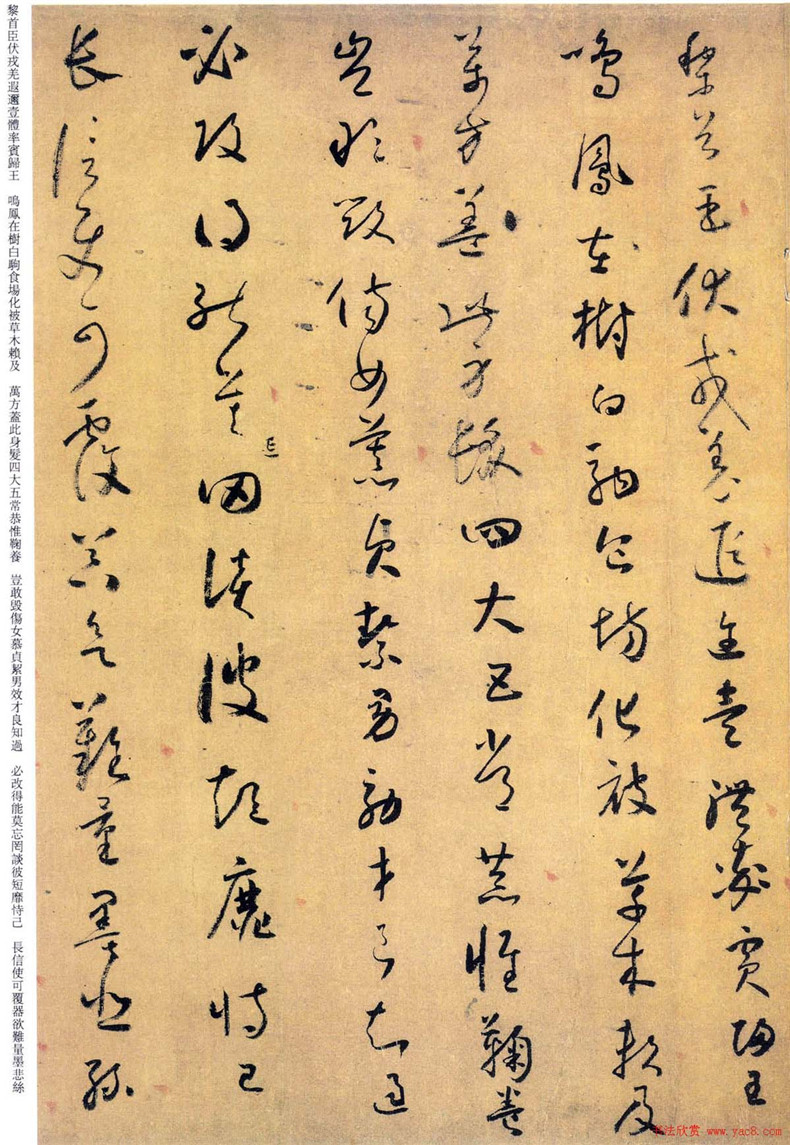 黎首臣伏戎羌遐邇壹體率賓歸王
鳴鳳在樹白駒食場化被草木賴及
萬方蓋此身髮四大五常恭惟鞠養
豈敢毀傷女慕貞絜男效才良知過
必改得能莫忘罔談彼短靡恃己
長信使可覆器欲難量墨悲絲
黎首臣伏戎羌遐邇壹體率賓歸王 鳴鳳在樹白駒食場化被草木賴及 萬方蓋此身髮四大五常恭惟鞠養 豈敢毀傷女慕貞絜男效才良知過 必改得能莫忘罔談彼短靡恃己 長信使可覆器欲難量墨悲絲
书法欣赏 www.yac8.com